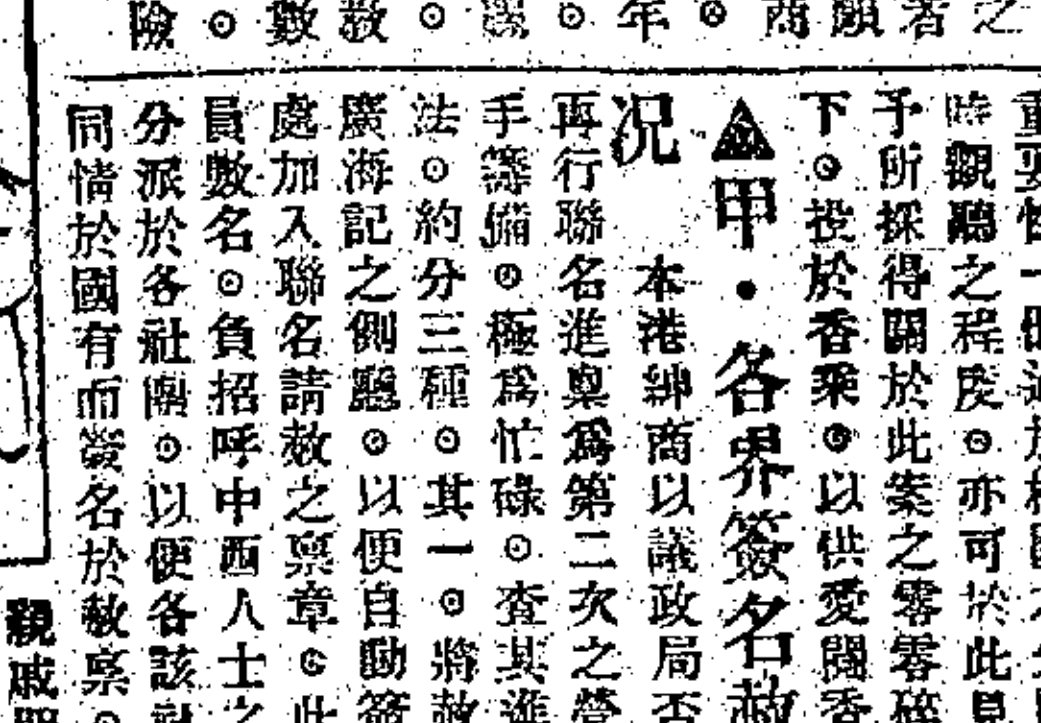 之
者
願
商
◎
年
◎
◎
救
數
◎
險
重要性一
時觀聽之程度◎亦可於此見
予所採得關於此案之零零碎
下◎投於香乘◎以供愛閱香
▲甲・各界簽名赦
况 本港紳商以議政局否
再行聯名進稟爲第二次之營
手籌備◎極爲忙碌◎查其進
法◎約分三種◎其一◎將赦
廣海記之側廳◎以便自動簽
處加入聯名請赦之稟章◎此
員數名◎負招呼中西人士之
分派於各社團◎以便各該社
同情於國有而簽名於赦稟◎
親戚